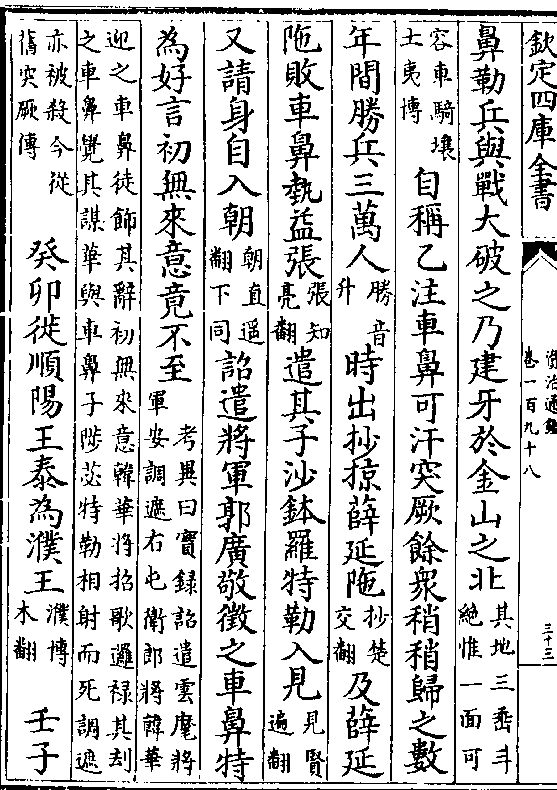 欽定四庫全書
資治通鑑
卷一百九十八
三十三
鼻勒兵與戰大破之乃建牙於金山之北其地三垂斗絶惟一面可
容車騎壤土夷博自稱乙注車鼻可汗突厥餘衆稍稍歸之數
年間勝兵三萬人勝音升時出抄掠薛延陁抄楚交翻及薛延
陁敗車鼻埶益張張知亮翻遣其子沙鉢羅特勒入見見賢遍翻
又請身自入朝朝直遥翻下同詔遣將軍郭廣敬徵之車鼻特
為好言初無來意竟不至考異曰實録詔遣雲麾將軍安調遮右屯衛郎將韓華
迎之車鼻徒飾其辭初無來意韓華將招歌邏禄共刦之車鼻覺其謀華與車鼻子陟苾特勒相射而死調遮
亦被殺今從舊突厥傳癸卯徙順陽王泰為濮王濮博木翻壬子